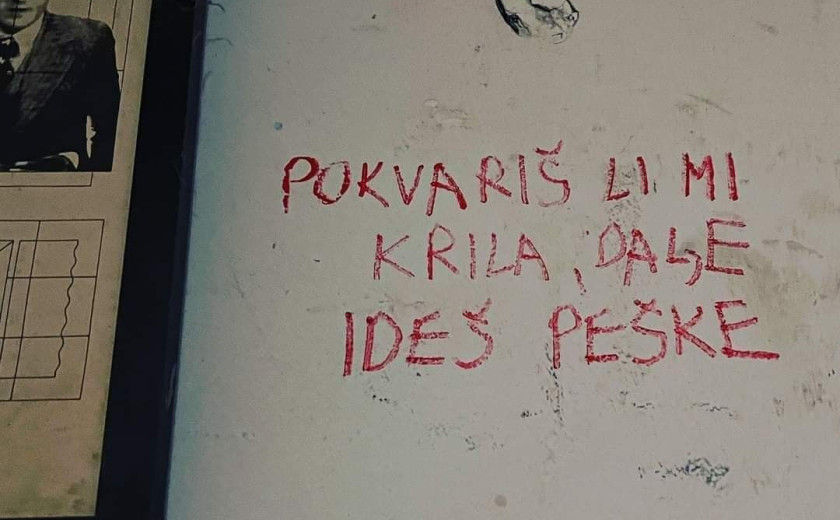 POKVARIŠ LI MI
KRILA, DAĻE
IDEŠ PEŠKE